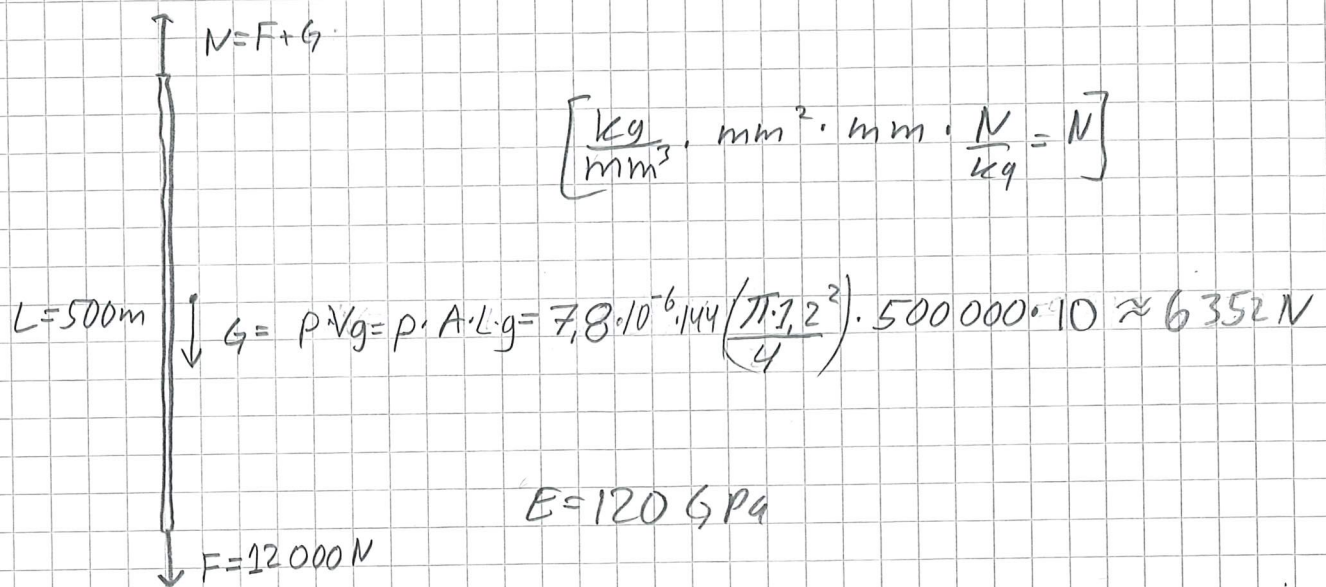 N=F+G
[kg/mm³ · mm² · mm · N/kg = N]
L=500m
G= ρ·Vg=ρ·A·L·g=7,8·10⁻⁶·144(π·1,2²/4)·500000·10 ≈ 6352N
E=120 GPa
F=12000N